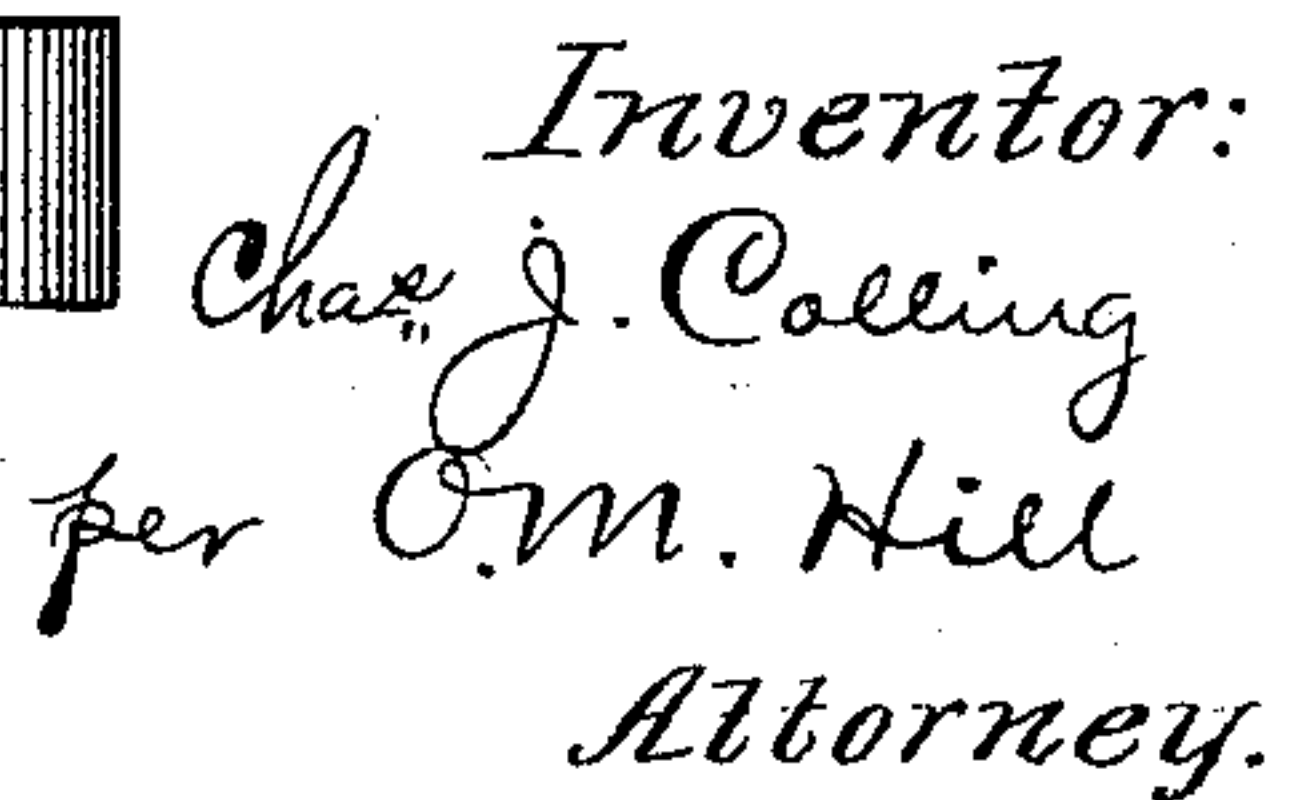 Inventor:
Chas. J. Colling
per O.M. Hill
Attorney.